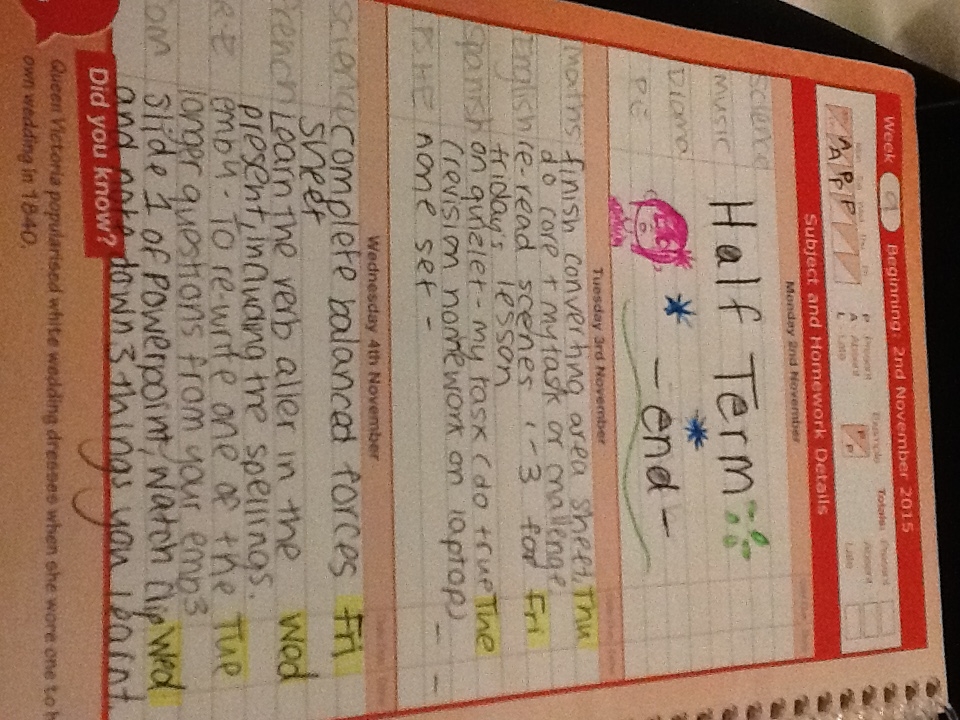 Week 9 Beginning: 2nd November 2015
Mon Tue Wed Thu Fri
P Present
A Absent
L Late
Example
Totals: Present
Absent
Late
A P P
A P
P
P
Subject and Homework Details
Monday 2nd November
Science
Music Half Term
Drama
PE - end -
Tuesday 3rd November
Maths finish converting area sheet, Thu
do core + my task or challenge
English re-read scenes 1-3 for Fri
friday's lesson
Spanish on quizlet - my task (do true Tue
(revision homework on laptop) -
PSHE none set - -
Wednesday 4th November
Science complete balanced forces Fri
sheet
French Learn the verb aller in the Wed
present, inculding the spellings.
RE emp4 - To re-write one of the Tue
longer quistions from your emp3
Com slide 1 of powerpoint, watch clip Wed
and note down 3 things you learnt
Did you know?
Queen Victoria popularised white wedding dresses when she wore one to h
own wedding in 1840.